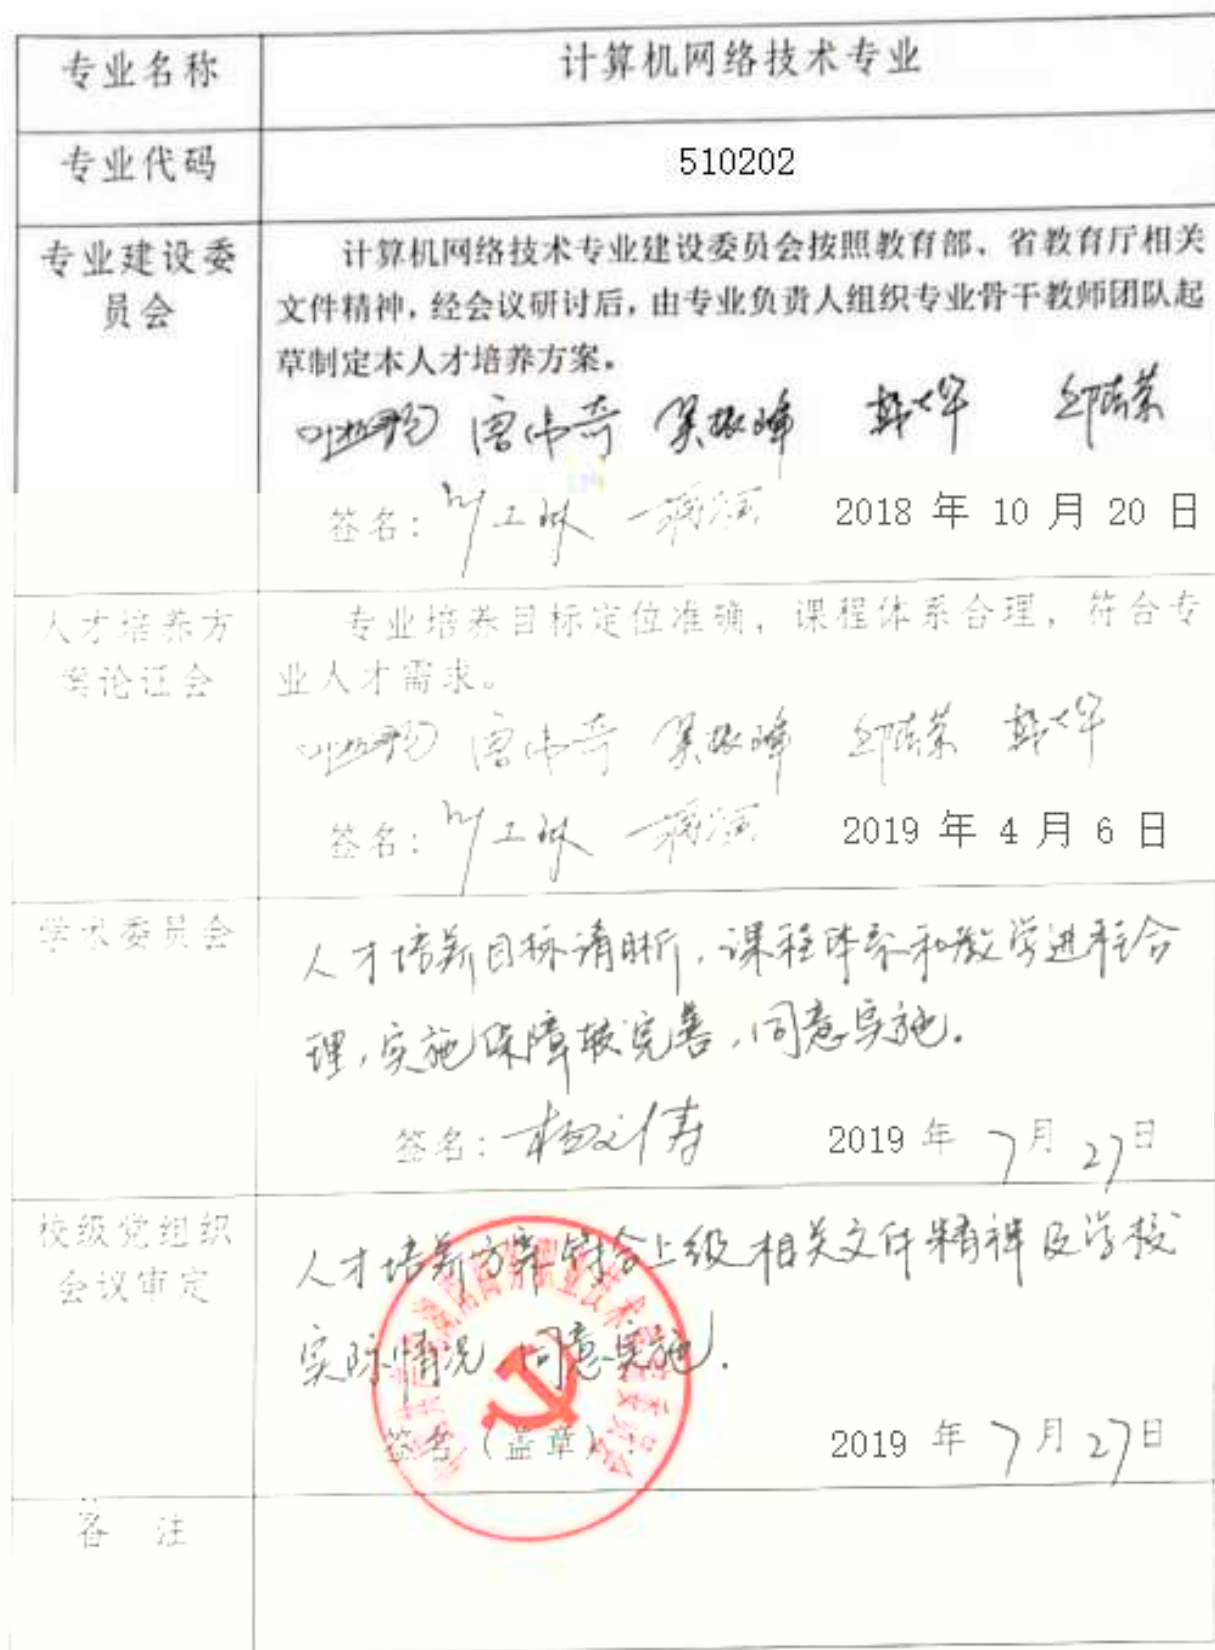 专业名称
计算机网络技术专业
专业代码
510202
专业建设委
员会
计算机网络技术专业建设委员会按照教育部、省教育厅相关
文件精神，经会议研讨后，由专业负责人组织专业骨干教师团队起
草制定本人才培养方案。
唐伟奇 吴振峰 邱志荣
签名： 2018 年 10 月 20 日
人才培养方
案论证会
专业培养目标定位准确，课程体系合理，符合专
业人才需求。
唐伟奇 吴振峰 邱志荣
签名： 2019 年 4 月 6 日
学术委员会
人才培养目标清晰，课程体系和教学进程合
理，实施保障较完善，同意实施。
签名： 2019 年 7 月 27 日
校级党组织
会议审定
人才培养方案符合上级相关文件精神及学校
实际情况，同意实施.
签名（盖章） 2019 年 7 月 27 日
备 注